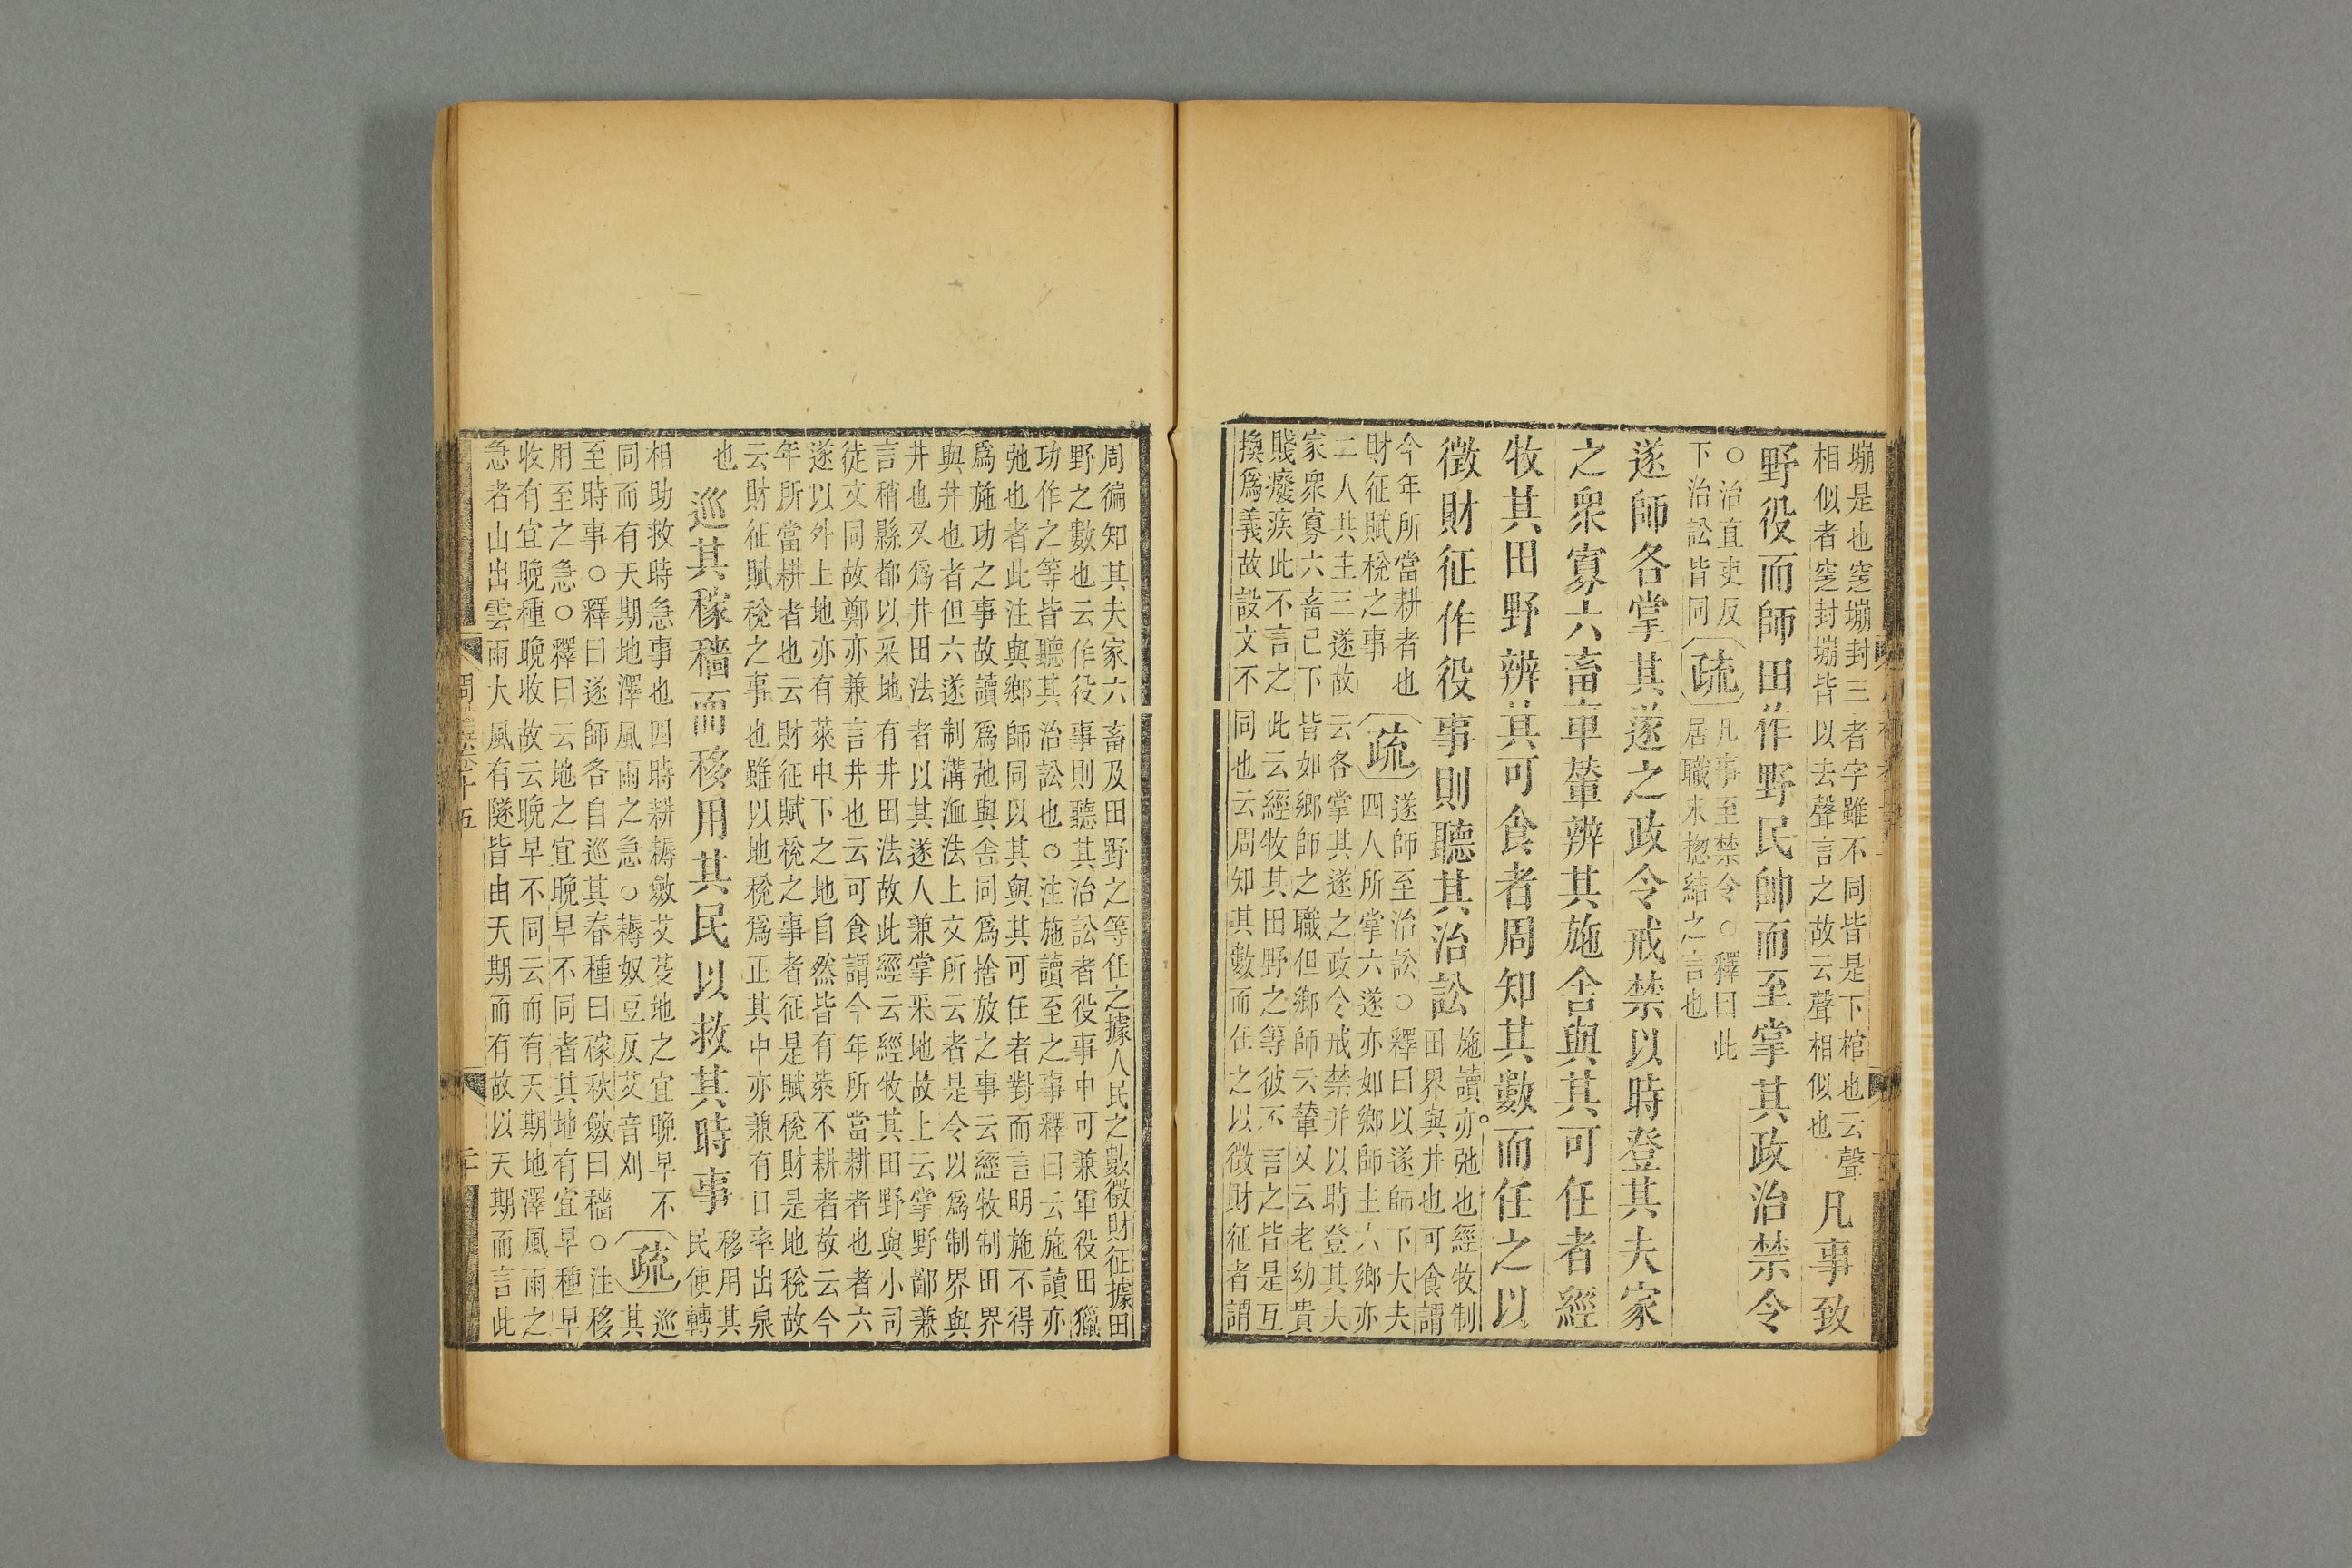 塴是也窆塴封三者字雖不同皆是下棺也云聲
相似者窆封塴皆以去聲言之故云聲相似也
凡事致
野役而師田作野民帥而至掌其政治禁令
○治直吏反
下治訟皆同
疏
凡事至禁令○釋曰此
居職末揔結之言也
遂師各掌其遂之政令戒禁以時登其夫家
之衆寡六畜車輦辨其施舍與其可任者經
牧其田野辨其可食者周知其數而任之以
徵財征作役事則聽其治訟
施讀亦弛也經牧制
田界與井也可食謂
今年所當耕者也
財征賦稅之事
疏
遂師至治訟○釋曰以遂師下大夫
四人所掌六遂亦如鄉師主六鄉亦
二人共主三遂故云各掌其遂之政令戒禁并以時登其夫
家衆寡六畜已下皆如鄉師之職但鄉師云輦又云老幼貴
賤癈疾此不言之此云經牧其田野之等彼不言之皆是互
換爲義故設文不同也云周知其數而任之以徵財征者謂
周徧知其夫家六畜及田野之等任之據人民之數徵財征據田
野之數也云作役事則聽其治訟者役事中可兼軍役田獵
功作之等皆聽其治訟也○注施讀至之事釋曰云施讀亦
弛也者此注與鄉師同以其與其可任者對而言明施不得
爲施功之事故讀爲弛與舍同爲捨放之事云經牧制田界
與井也者但六遂制溝洫法上文所云者是令以爲制界與
井也又爲井田法者以其遂人兼掌采地故上云掌野鄙兼
言稍縣都以采地有井田法故此經云經牧其田野與小司
徒文同故鄭亦兼言井也云可食謂今年所當耕者也者六
遂以外上地亦有萊中下之地自然皆有萊不耕者故云今
年所當耕者也云財征賦稅之事者征是賦稅財是地稅故
云財征賦稅之事也雖以地稅爲正其中亦兼有口率出泉
也
巡其稼穡而移用其民以救其時事
移用其
民使轉
相助救時急事也四時耕耨斂艾芟地之宜晚早不
同而有天期地澤風雨之急○耨奴豆反艾音刈
疏
巡
其
至時事○釋曰遂師各自巡其春種曰稼秋斂曰穡○注移
用至之急○釋曰云地之宜晚早不同者其地有宜早種早
收有宜晚種晚收故云晚早不同云而有天期地澤風雨之
急者山出雲雨大風有隧皆由天期而有故以天期而言此